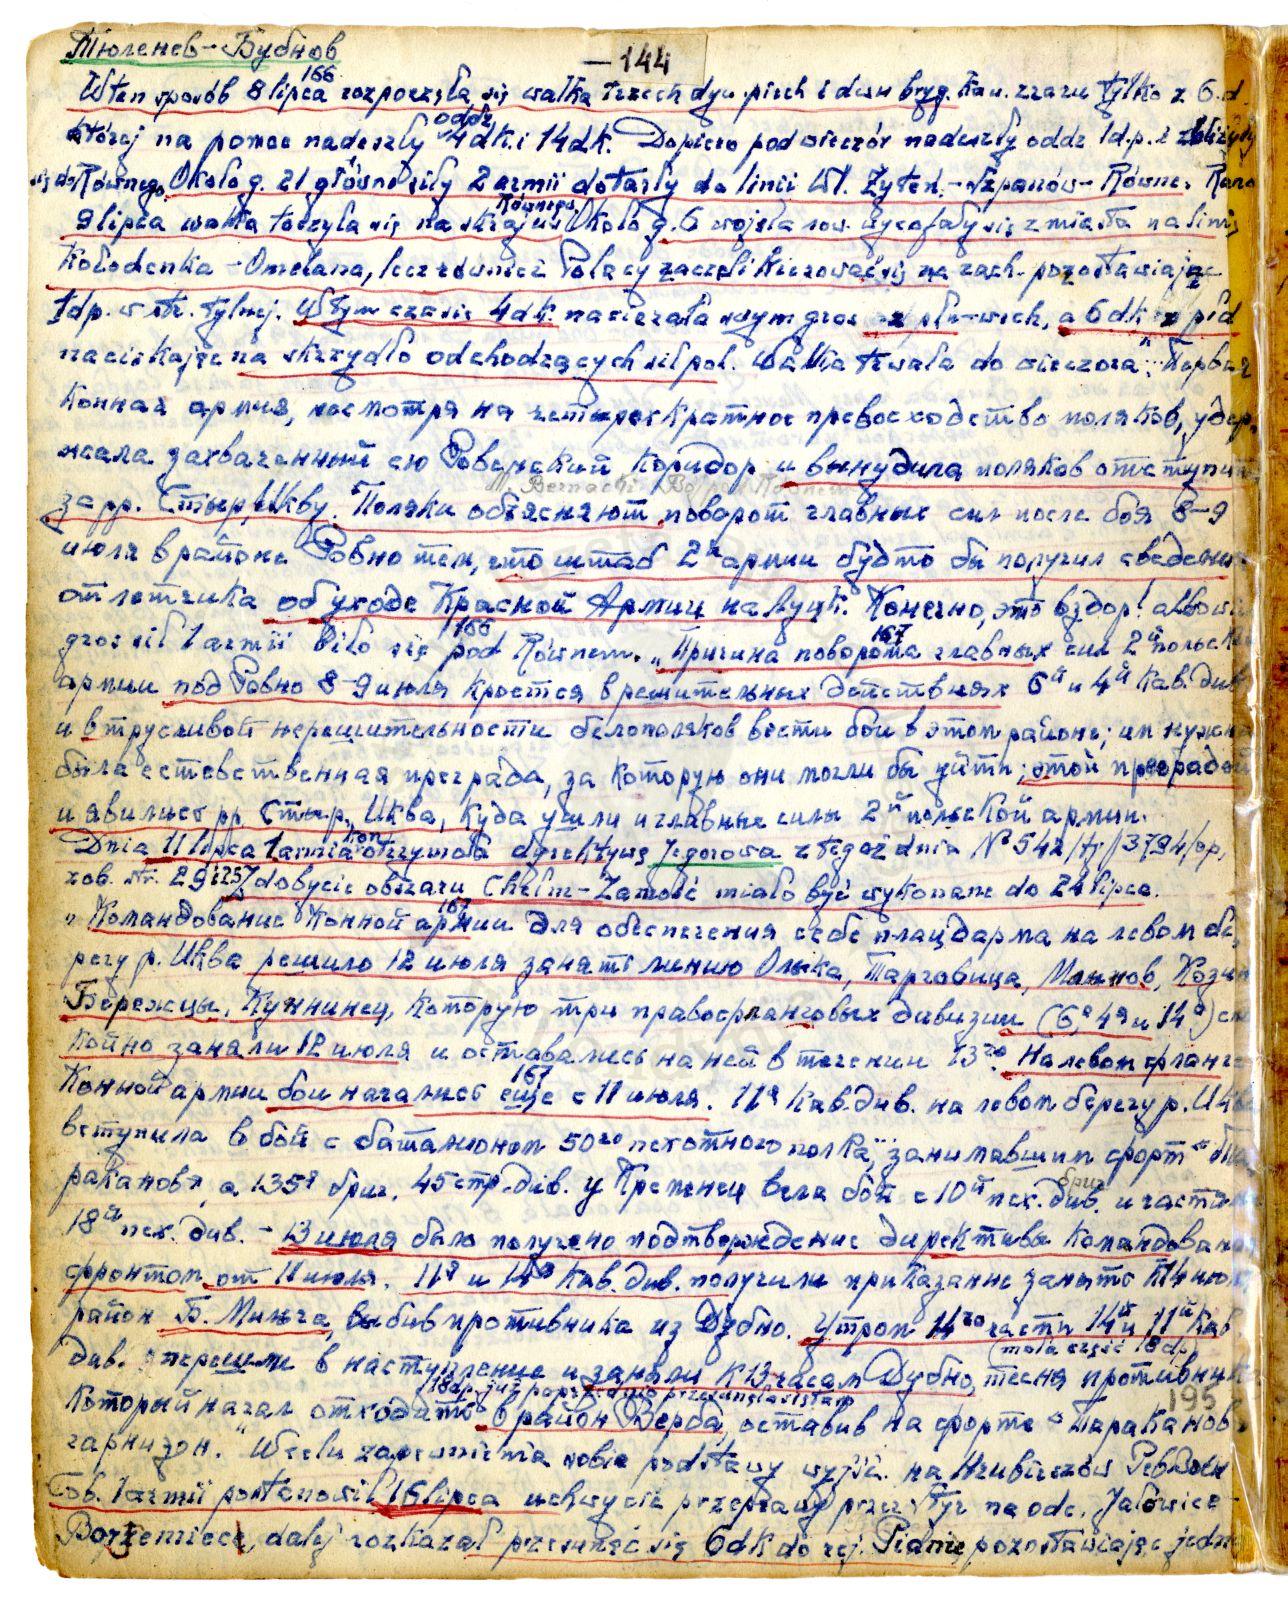 Тюленев-Бубнов
—144
166
W ten sposób 8 lipca rozpoczęła się walka trzech dyw. piech i dwu bryg. kaw. zrazu tylko z 6.d.
oddz.
której na pomoc nadeszły 4dk. i 14dk. Dopiero pod wieczór nadeszły oddz 1d.p. i zbliżyły
się do Równego. Około g. 21 główne siły 2 armii dotarły do linii Wl. Żyteń.-Szpanów-Równe. Rano
Równego
9 lipca walka toczyła się na skraju. Około g. 6 wojska sow. wycofały się z miasta na linię
Kołodenka-Omelana, lecz również Polacy zaczęli kierować się na zach. pozostawiając
1dp. w str. tylnej. W tym czasie 4dk. nacierała swym gros z płn-wsch, a 6dk z płd
naciskając na skrzydło odchodzących sił pol. Walka trwała do wieczora. „Первая
Конная армия, несмотря на четырехкратное превосходство поляков, удер-
жала захваченный ею Ровенский коридор и вынудила поляков отступить
за рр. Стыр, Икву. Поляки объясняют поворот главных сил после боя 8-9
июля в районе Ровно тем, что штаб 2й армии будто бы получил сведения
от летчика об уходе Красной Армии на Луцк. Конечно, это вздор! albowiem
166 167
gros sił 1 armii biło się pod Równem. „Причина поворота главных сил 2й польской
армии под Ровно 8-9 июля кроется в решительных действиях 6й и 4й кав. див.
и в трусливой нерешительности белополяков вести бои в этом районе; им нужна
была естественная преграда, за которую они могли бы уйти; этой преградой
и явились рр. Стыр, Иква, куда ушли и главные силы 2й польской армии.
kon.
Dnia 11 lipca 1 armia otrzymała dyrektywę Jegorowa z tegoż dnia № 542/tj/3794/op,
zob. str. 29 i 257 dobycie obszaru Chełm-Zamość miało być wykonane do 24 lipca.
167
„Командование Конной армии для обеспечения себе плацдарма на левом бе-
регу р. Иква решило 12 июля занять линию Олыка, Тарговица, Млынов, Козин
Бережцы, Кунинец, которую три правофланговых дивизии (6я 4я и 14я) спо
койно заняли 12 июля и оставались на ней в течении 13го. На левом фланге
167
Конной армии бои начались еще с 11 июля. 11я кав.див. на левом берегу р. Иква
вступила в бой с баталионом 50го пехотного полка, занимавшим форт „Та
раканов", а 135я бриг. 45 стр.див. у Кременец вела бой с 10й пех. див. и частями
бриг
18й пех. див. - 13 июля было получено подтверждение директивы Командования
фронтом от 11 июля. 11я и 14я кав. див. получили приказание занять к 14 июля
район Б. Мильча, выбив противника из Дубно. Утром 14го части 14й и 11й кав
(mała część 18dp)
див. перешли в наступление и заняли к 13 часам Дубно, тесня противника
18dp. już poprzednio przesunęła się tam
который начал отходить в район Верба, оставив на форте „Тараканов"
195
гарнизон." W celu zapewnienia sobie podstawy wyjść. na Hrubieszów RebWoen
Sow. 1 armii postanowił 16 lipca uchwycić przeprawy przez Styr na odc. Jałowice-
Boremiec, dalej rozkazał przesunąć się 6dk do rej. Piannie, pozostawiając jedn